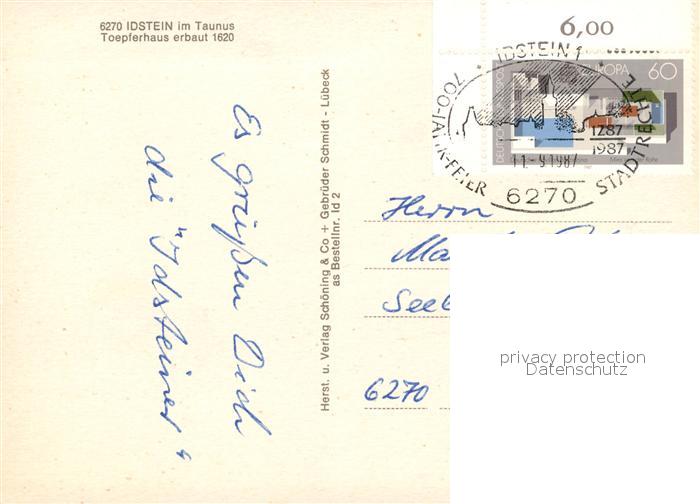 6270 IDSTEIN im Taunus
Toepferhaus erbaut 1620
Es grüßen Dich
die "Idsteiner"
Herst. u. Verlag Schöning & Co + Gebrüder Schmidt - Lübeck
as Bestellnr. Id 2
6,00
EUROPA 60
IDSTEIN 1
700-JAHR-FEIER
STADTRECHTE
1287
1987
11.-9.1987
6270
Herrn
6270
privacy protection
Datenschutz